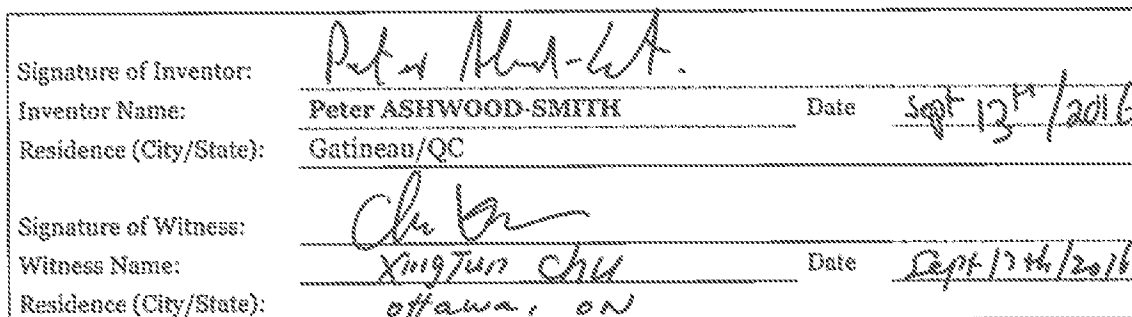 Signature of Inventor:
Inventor Name: Peter ASHWOOD-SMITH Date Sept 13th/2016
Residence (City/State): Gatineau/QC
Signature of Witness:
Witness Name: XingJun Chu Date Sept 13th/2016
Residence (City/State): ottawa, ON